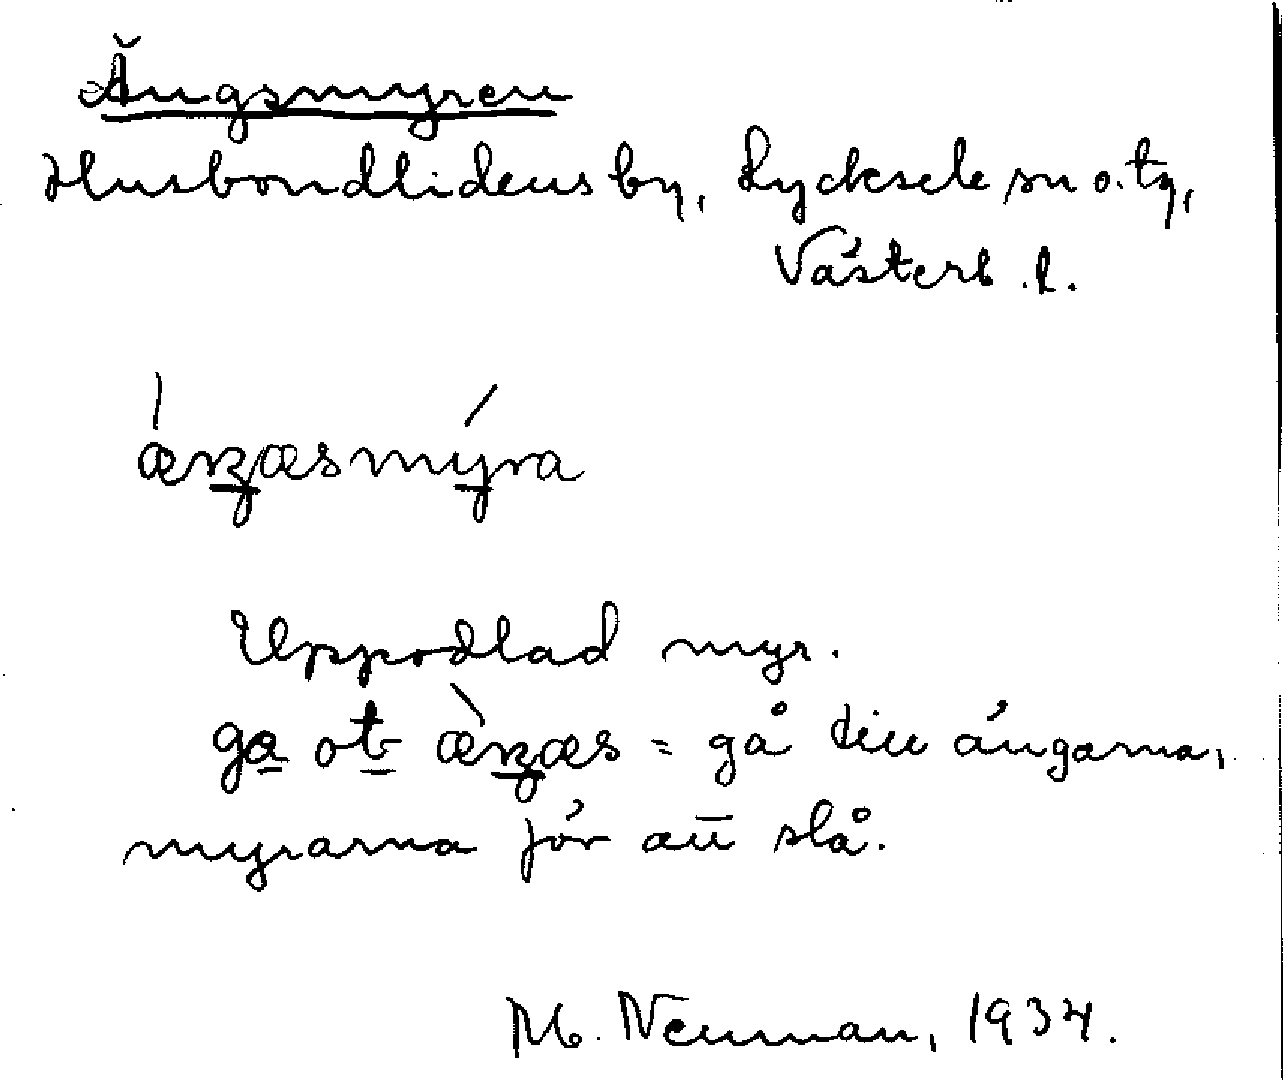 Ängsmyren
Husbondlidens by, Lycksele sn o. tg,
Västerb. l.
Uppodlad myr.
= gå till ängarna,
myrarna för att slå.
M. Neuman, 1934.